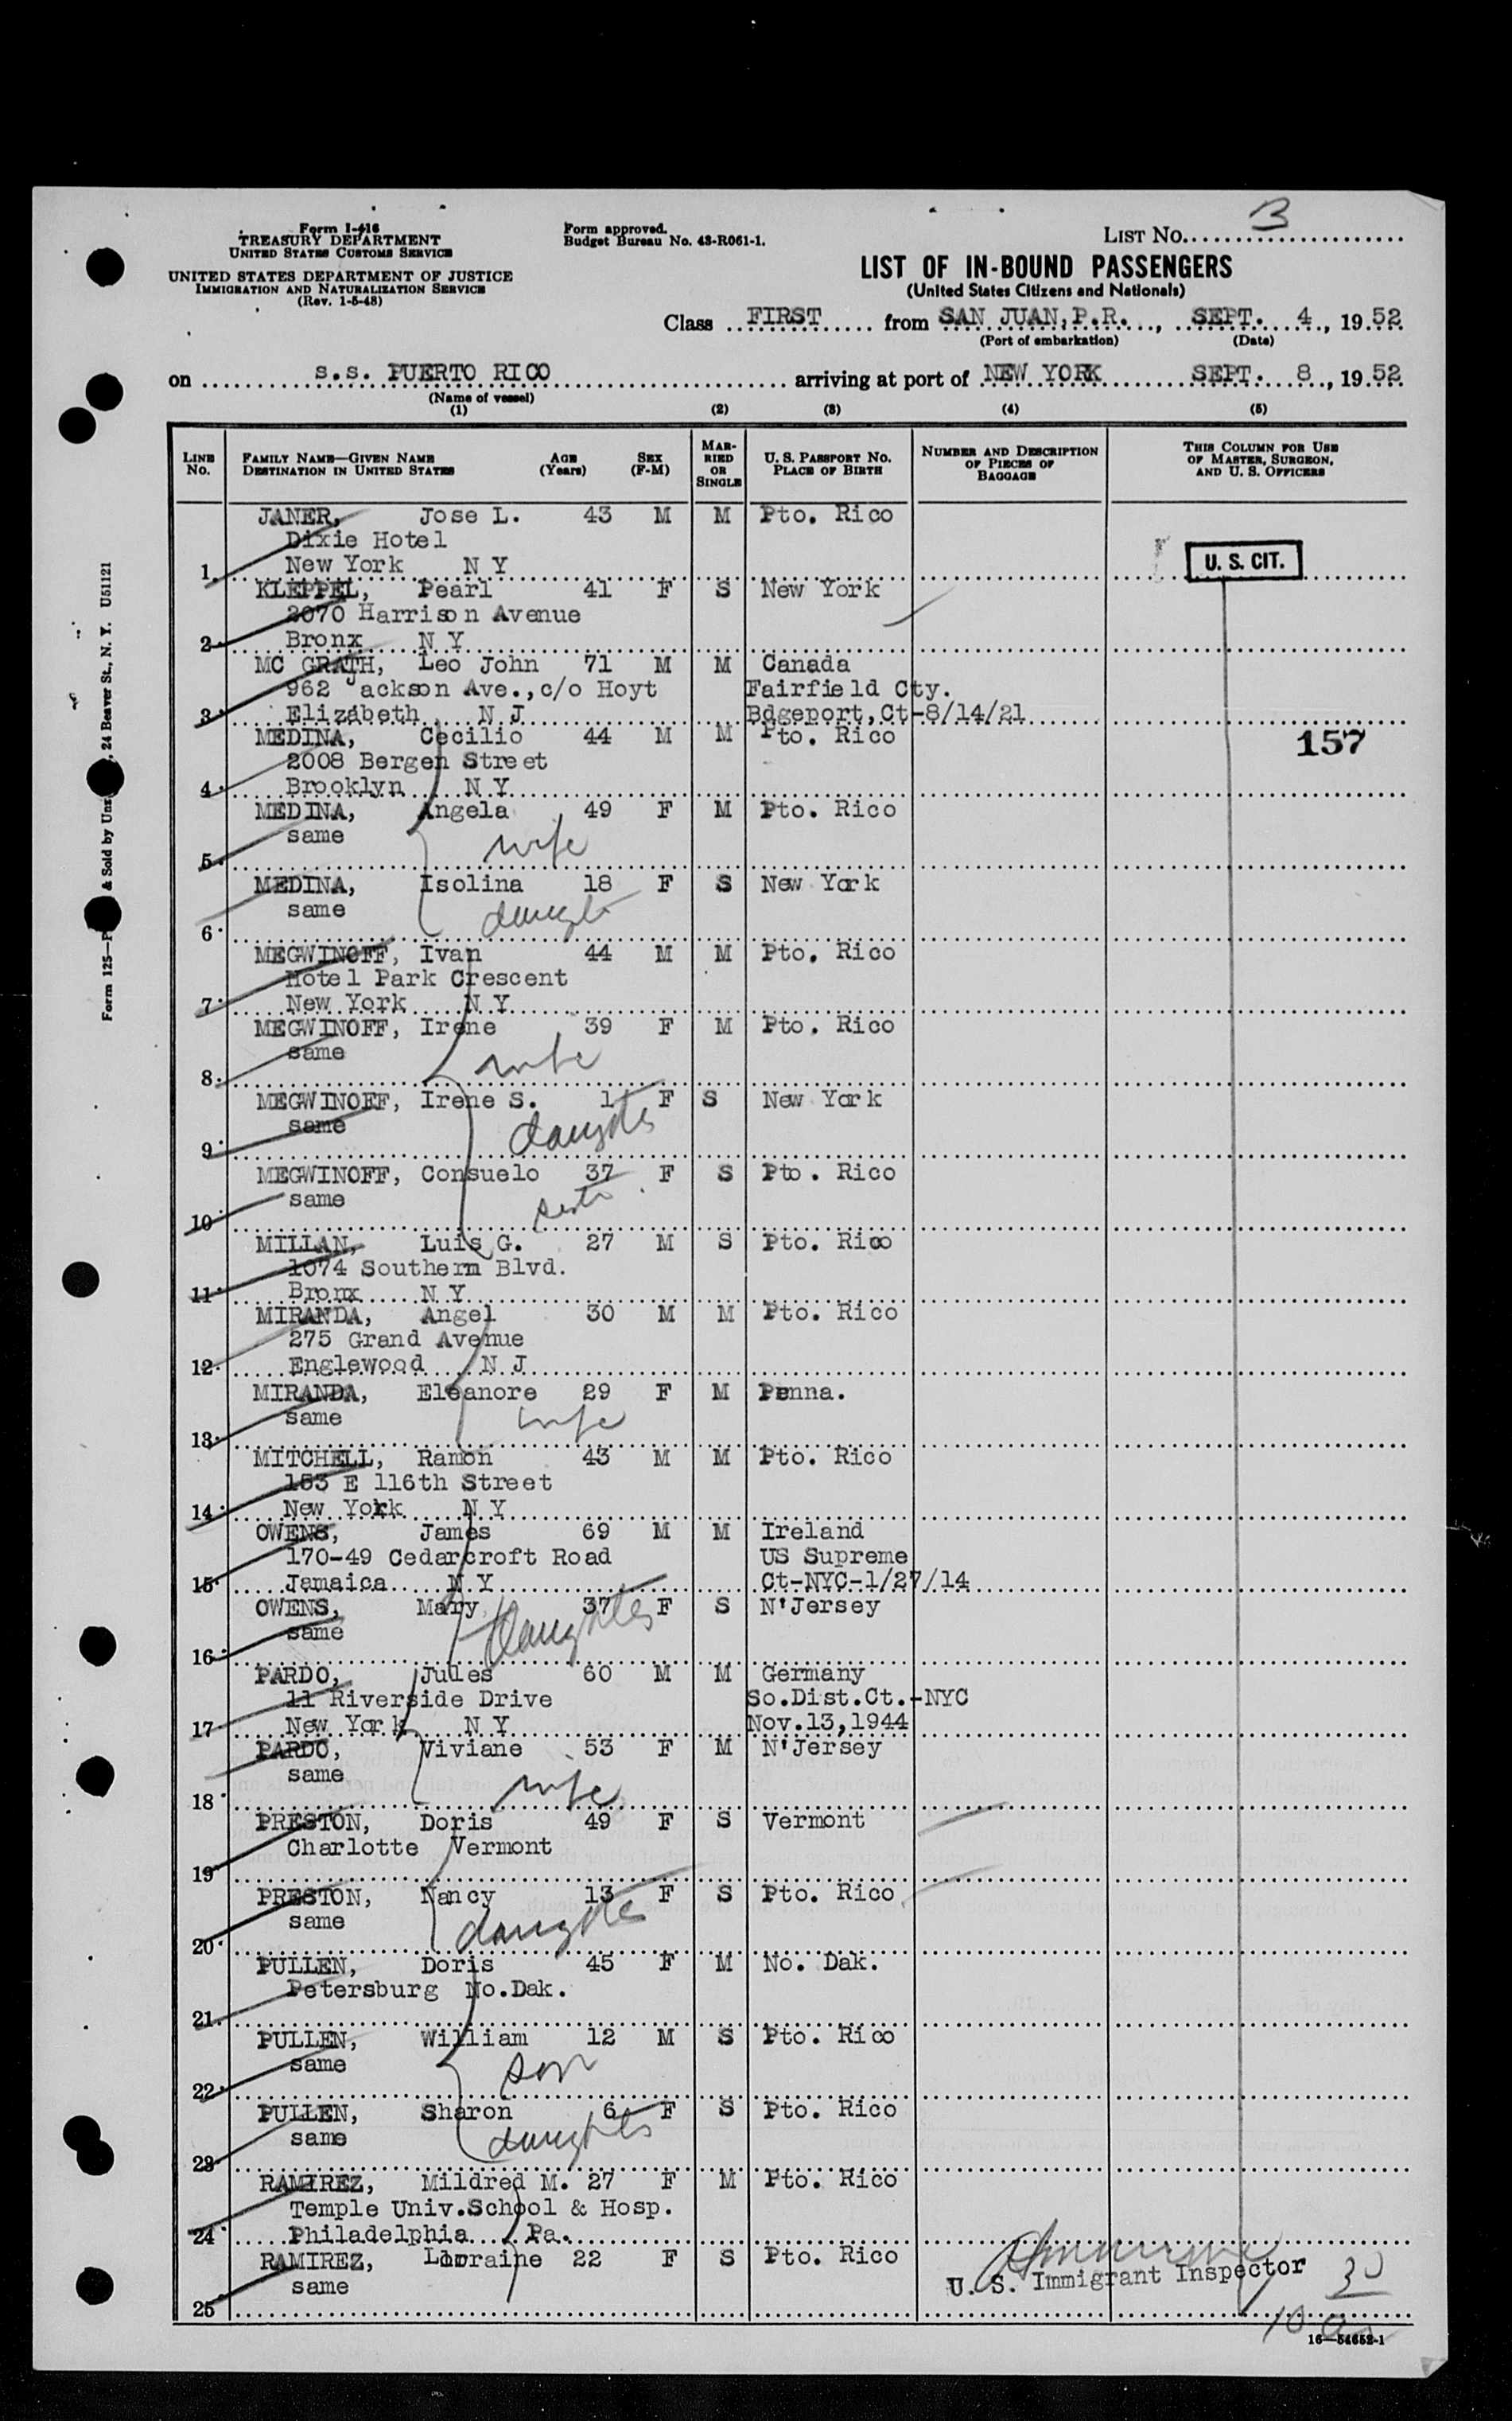 Form I-416
TREASURY DEPARTMENT
UNITED STATES CUSTOMS SERVICE
UNITED STATES DEPARTMENT OF JUSTICE
IMMIGRATION AND NATURALIZATION SERVICE
(Rev. 1-5-48)
Form approved.
Budget Bureau No. 43-R061-1.
LIST No. 3
LIST OF IN-BOUND PASSENGERS
(United States Citizens and Nationals)
Class FIRST from SAN JUAN, P.R., SEPT. 4, 1952
(Port of embarkation) (Date)
on s.s. PUERTO RICO arriving at port of NEW YORK SEPT. 8, 1952
(Name of vessel)
(1) (2) (3) (4) (5)
LINE No. FAMILY NAME—GIVEN NAME DESTINATION IN UNITED STATES AGE (Years) SEX (F-M) MARRIED OR SINGLE U. S. PASSPORT No. PLACE OF BIRTH NUMBER AND DESCRIPTION OF PIECES OF BAGGAGE THIS COLUMN FOR USE OF MASTER, SURGEON, AND U. S. OFFICERS
JANER, Jose L. 43 M M Pto. Rico
Dixie Hotel
1. New York N Y U. S. CIT.
KLEPPEL, Pearl 41 F S New York
2070 Harrison Avenue
2. Bronx N Y
MC GRATH, Leo John 71 M M Canada
962 Jackson Ave., c/o Hoyt Fairfield Cty.
3. Elizabeth N J Bdgeport, Ct-8/14/21
MEDINA, Cecilio 44 M M Pto. Rico 157
2008 Bergen Street
4. Brooklyn N Y
MEDINA, Angela 49 F M Pto. Rico
same wife
5.
MEDINA, Isolina 18 F S New York
same
6.
MEGWINOFF, Ivan 44 M M Pto. Rico
Hotel Park Crescent
7. New York N Y
MEGWINOFF, Irene 39 F M Pto. Rico
same wife
8.
MEGWINOFF, Irene S. 1 F S New York
same daughter
9.
MEGWINOFF, Consuelo 37 F S Pto. Rico
same
10.
MILLAN, Luis G. 27 M S Pto. Rico
1074 Southern Blvd.
11. Bronx N Y
MIRANDA, Angel 30 M M Pto. Rico
275 Grand Avenue
12. Englewood N J
MIRANDA, Eleanore 29 F M Penna.
same wife
13.
MITCHELL, Ramon 43 M M Pto. Rico
153 E 116th Street
14. New York N Y
OWENS, James 69 M M Ireland
170-49 Cedarcroft Road US Supreme
15. Jamaica N Y Ct-NYC-1/27/14
OWENS, Mary 37 F S N'Jersey
same daughter
16.
PARDO, Jules 60 M M Germany
11 Riverside Drive So.Dist.Ct.-NYC
17. New York N Y Nov.13,1944
PARDO, Viviane 53 F M N'Jersey
same wife
18.
PRESTON, Doris 49 F S Vermont
Charlotte Vermont
19.
PRESTON, Nancy 13 F S Pto. Rico
same daughter
20.
PULLEN, Doris 45 F M No. Dak.
Petersburg No.Dak.
21.
PULLEN, William 12 M S Pto. Rico
same son
22.
PULLEN, Sharon 6 F S Pto. Rico
same daughter
23.
RAMIREZ, Mildred M. 27 F M Pto. Rico
Temple Univ.School & Hosp.
24. Philadelphia Pa.
RAMIREZ, Lorraine 22 F S Pto. Rico
same
25.
U. S. Immigrant Inspector 30
10
16—54652-1
Form 125— & Sold by Unz , 24 Beaver St., N. Y. U51121